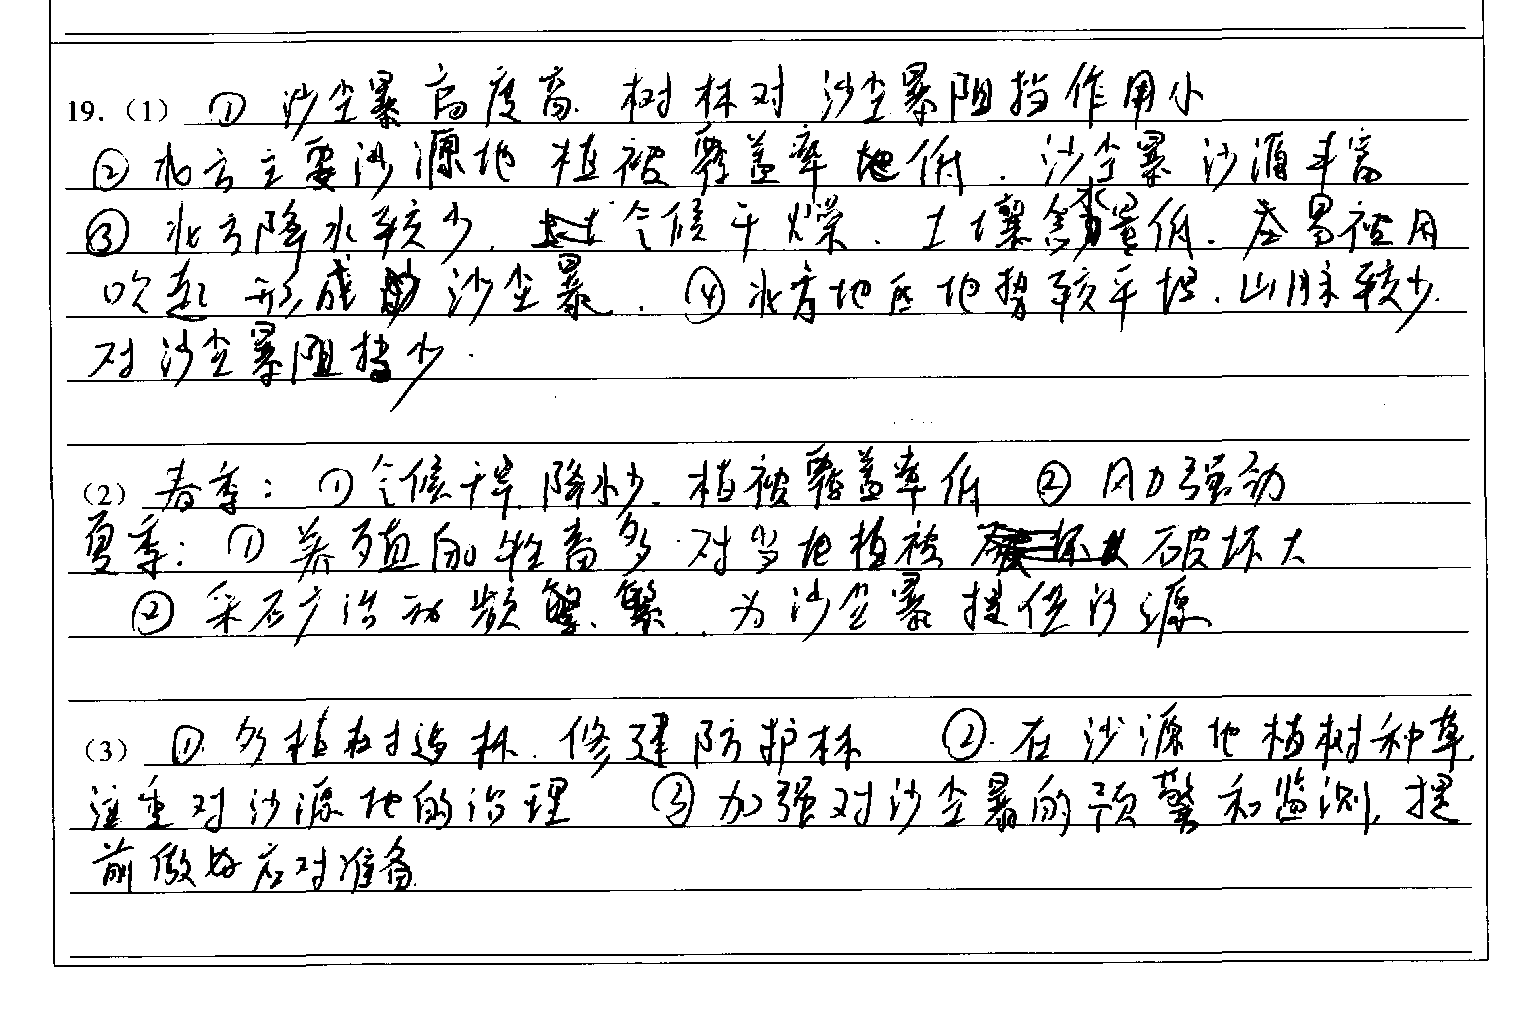 19.（1）① 沙尘暴高度高 树林对沙尘暴阻挡作用小
② 北方主要沙源地植被覆盖率地低．沙尘暴沙源丰富
③ 北方降水较少．气候干燥．土壤含水量低．容易被风
吹起形成沙尘暴．④ 北方地区地势较平坦．山脉较少．
对沙尘暴阻挡少．
（2）春季：①气候干旱 降水少．植被覆盖率低 ② 风力强劲
夏季：① 养殖的牲畜多．对当地植被 破坏大
② 采矿活动频繁．为沙尘暴提供沙源
（3）①．多植树造林．修建防护林 ②．在沙源地植树种草，
注重对沙源地的治理 ③ 加强对沙尘暴的预警和监测，提
前做好应对准备．